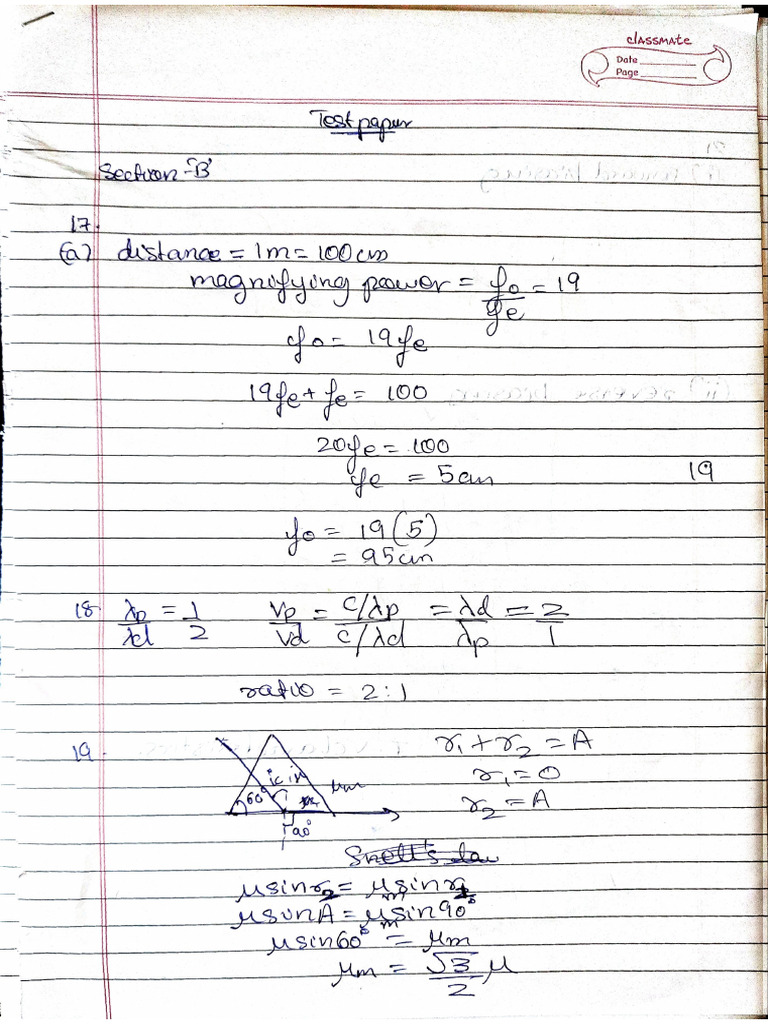 classmate
Date
Page
Test paper
Section-'B'
17.
(a) distance = 1m = 100cm
magnifying power = fo/fe = 19
fo = 19fe
19fe + fe = 100
20fe = 100
fe = 5cm 19
fo = 19(5)
= 95cm
18. λp/λd = 1/2 νp/νd = c/λp / c/λd = λd/λp = 2/1
ratio = 2:1
19. r1 + r2 = A
r1 = 0
r2 = A
60° ic μm
90°
Snell's law
μsinr2 = μm sinr2
μsinA = μm sin90°
μsin60° = μm
μm = √3/2 μ